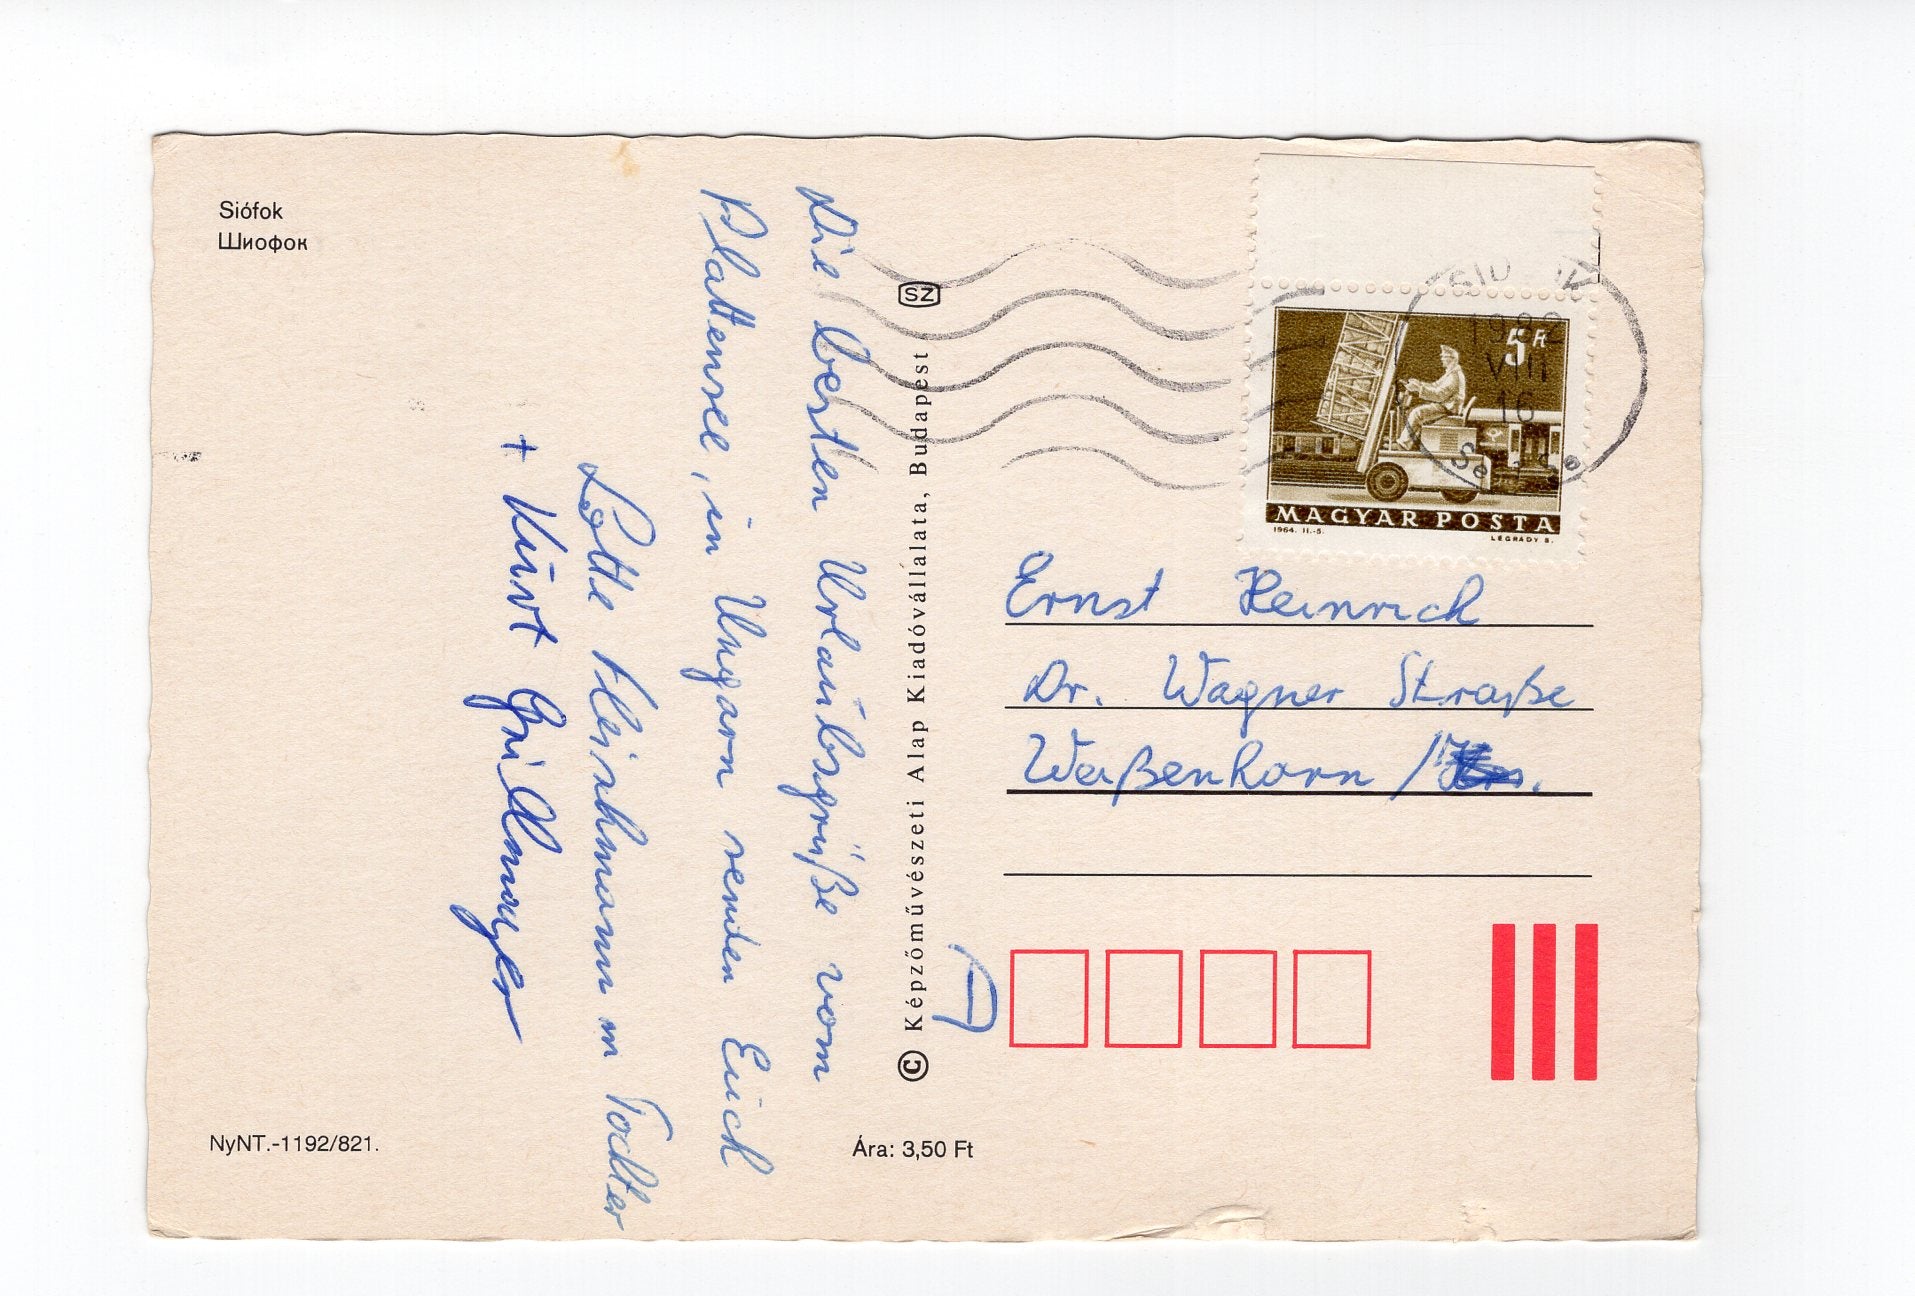 Siófok
Шиофок
Die besten Urlaubsgrüße vom
Plattensee, in Ungarn senden Euch
Lotte Fleischmann m Tochter
+ Kurt Grillmayer
NyNT.-1192/821.
SZ
© Képzőművészeti Alap Kiadóvállalata, Budapest
Ára: 3,50 Ft
1982
VIII
16
5 Ft
MAGYAR POSTA
1964. II.-5.
LÉGRÁDY S.
Ernst Heinrich
Dr. Wagner Straße
Weißenhorn /
A